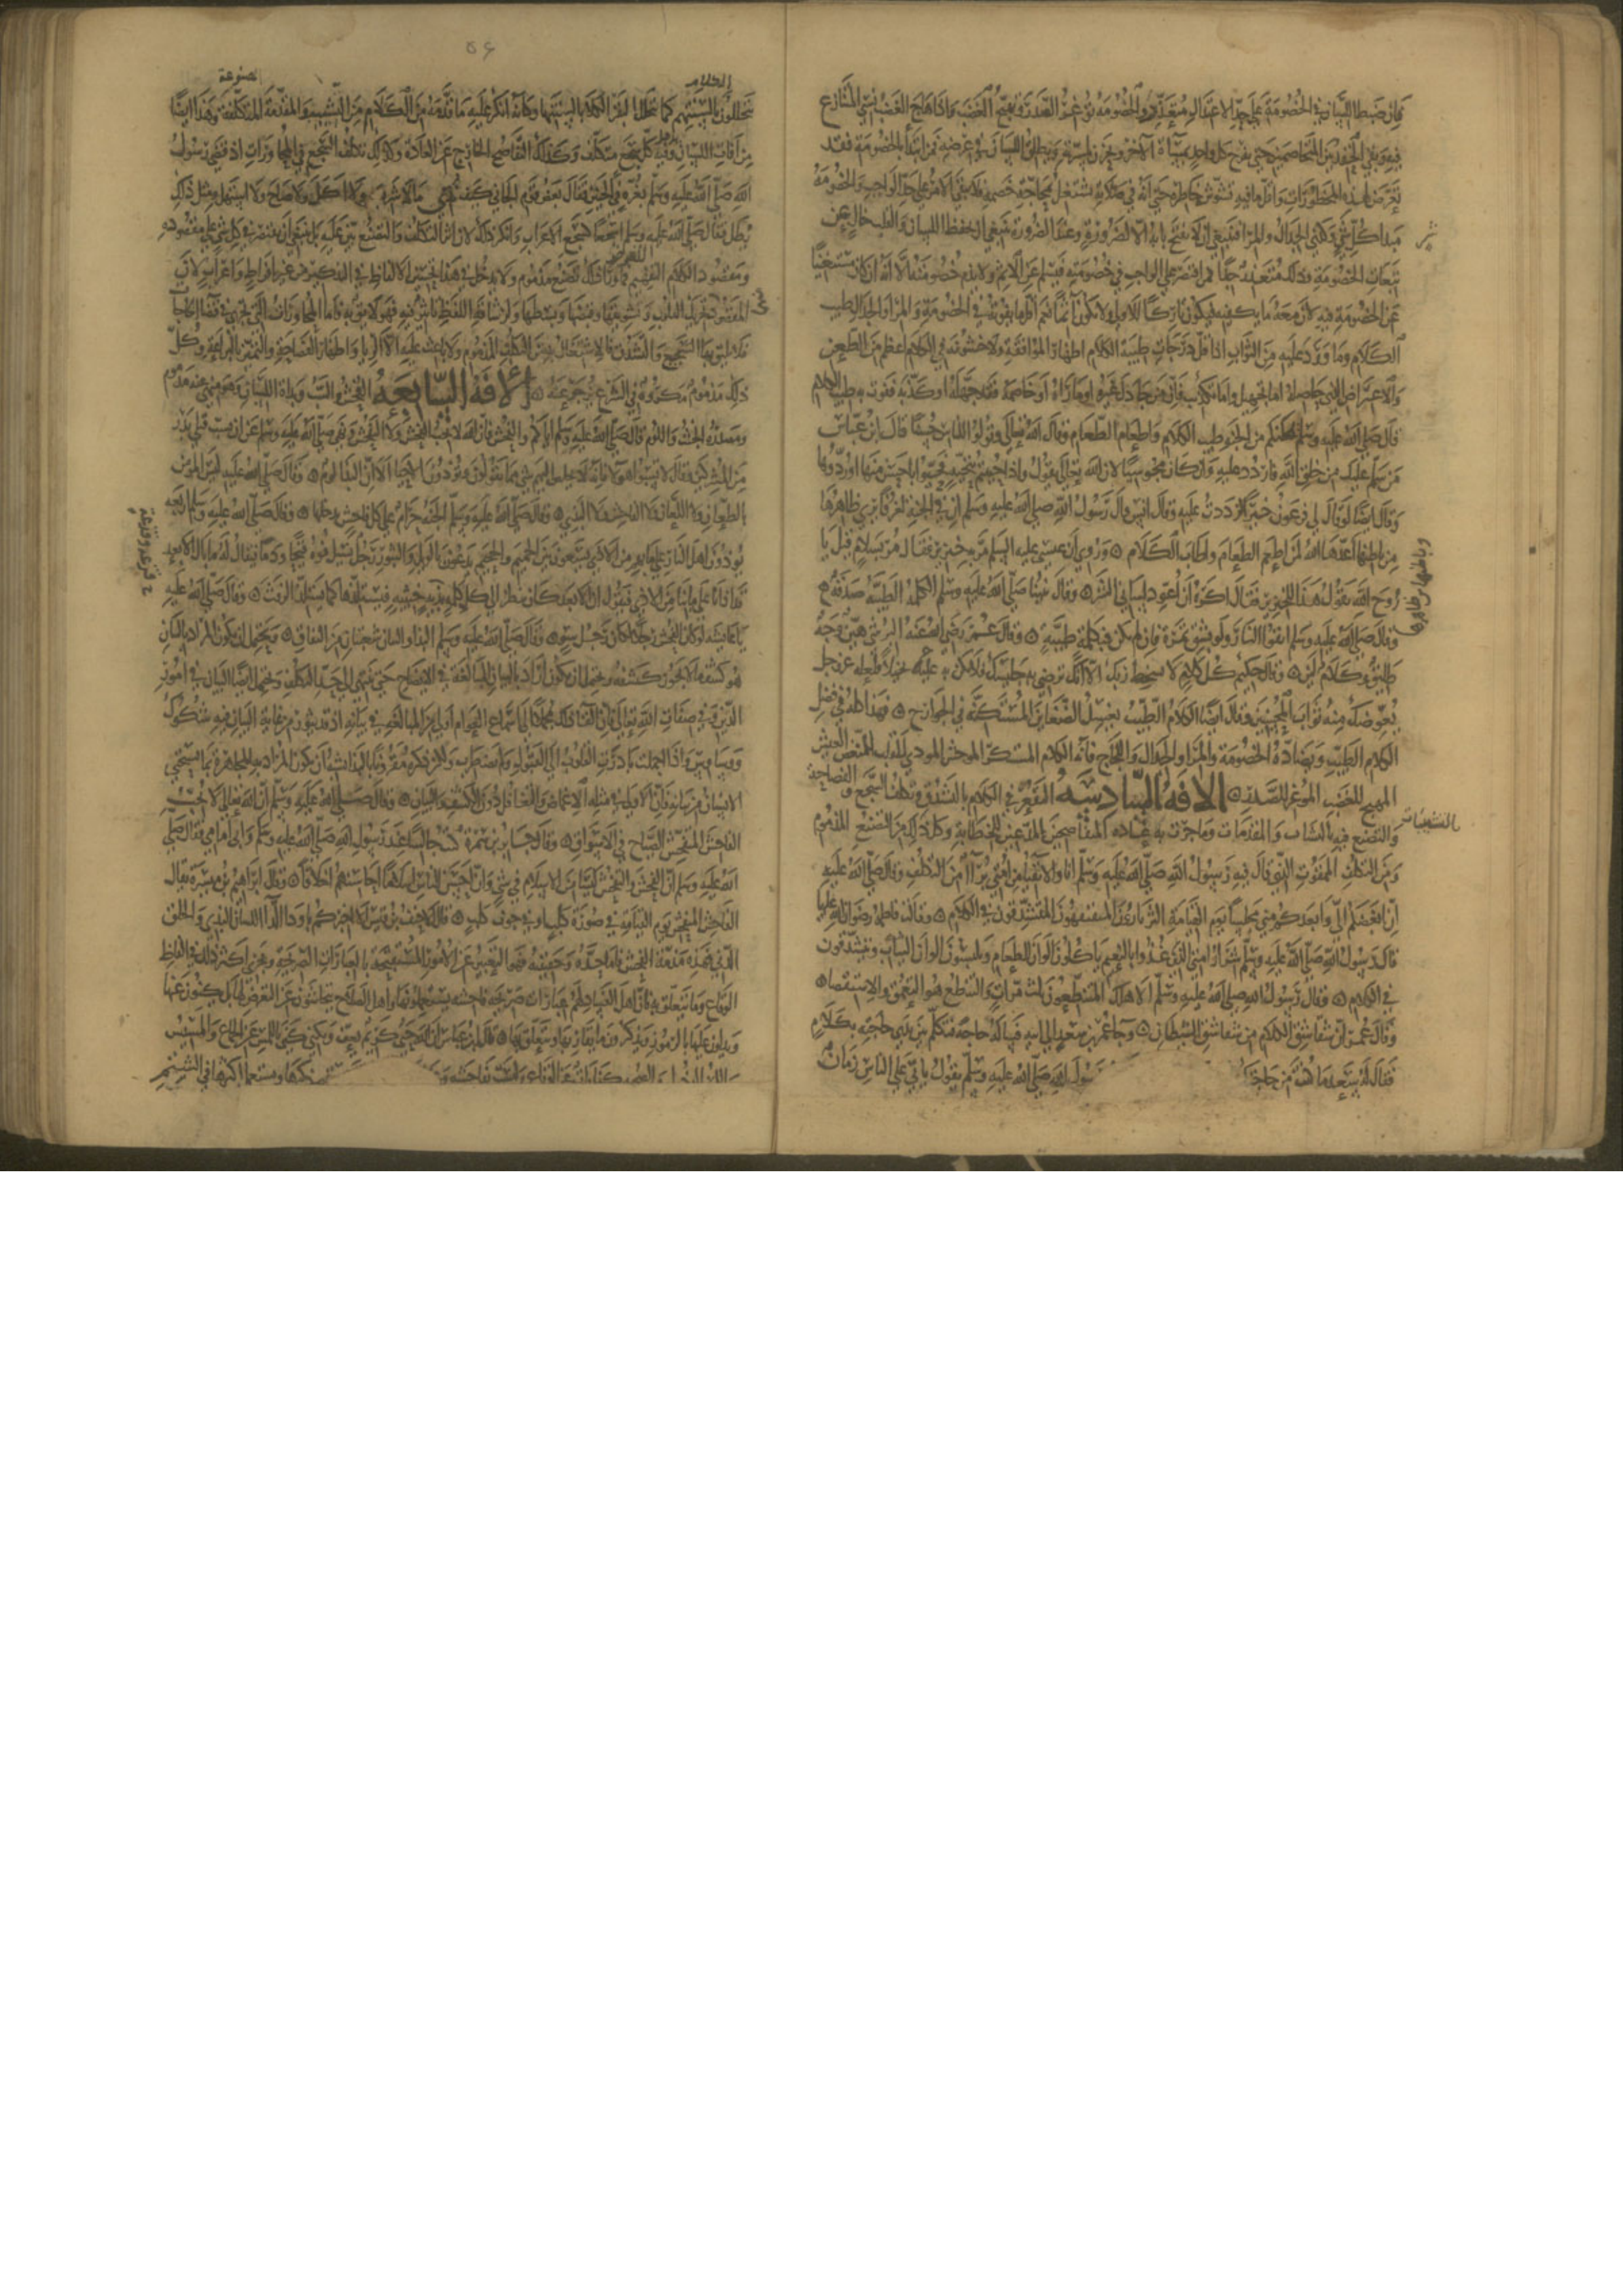 فان ضبط اللسان في الخصومة على حد الاعتدال متعذر والخصومة توغر الصدر وتهيج الغضب واذا هاج الغضب نسي المتنازع
فيه وبقي الحقد بين المتخاصمين حتى يفرح كل واحد بمساة الاخر ويحزن بمسرته ويطلق اللسان في عرضه فمن ابتدا بالخصومة فقد
تعرض لهذه المحظورات واقل ما فيه تشوش خاطره حتى انه في صلاته يشتغل بمحاجة خصمه فلا يبقى الامر على حد الواجب والخصومة
مبدا كل شر وكذى الجدال والمرا فينبغي ان لا يفتح بابه الا لضرورة وعند الضرورة ينبغي ان يحفظ اللسان والقلب عن
تبعات الخصومة وذلك متعذر جدا فمن اقتصر على الواجب في خصومته فيسلم عن الاثم ولا يذم خصومته الا انه ان كان مستغنيا
عن الخصومة فيه لان معه ما يكفيه فيكون تاركا للاولى ولا يكون اثما نعم اقل ما يفوته في الخصومة والمرا والجدال طيب
الكلام وما ورد عليه من الثواب اذ اقل درجات طيبة الكلام اظهار الموافقة ولا خشونة في الكلام اعظم من الطعن
والاعتراض الذي حاصله اما تجهيل واما تكذيب فان من جادل غيره او ماراه او خاصمه فقد جهله او كذبه فيفوت به طيب الكلام
قال صلى الله عليه وسلم يمكنكم من الجنة طيب الكلام واطعام الطعام وقال الله تعالى وقولوا للناس حسنا قال ابن عباس
من سلم عليك من خلق الله فاردد عليه وان كان مجوسيا لان الله تعالى يقول واذا حييتم بتحية فحيوا باحسن منها او ردوها
وقال ايضا لو قال لي فرعون خيرا لرددت عليه وقال انس قال رسول الله صلى الله عليه وسلم ان في الجنة لغرفا يرى ظاهرها
من باطنها اعدها الله لمن اطعم الطعام واطاب الكلام وروي ان عيسى عليه السلم مر به خنزير فقال مر بسلام فقيل يا
وباطنها من ظاهرها
روح الله تقول هذا للخنزير فقال اكره ان اعود لساني الشر وقال نبينا صلى الله عليه وسلم الكلمة الطيبة صدقة
وقال صلى الله عليه وسلم اتقوا النار ولو بشق تمرة فان لم يكن فبكلمة طيبة وقال عمر رضي الله عنه البر شي هين وجه
طليق وكلام لين وقال حكيم كل كلام لا يسخط ربك الا انك ترضي به جليسك فلا تكن به عليه بخيلا فلعله عز وجل
يعوضك منه ثواب المحسنين وقال ايضا الكلام الطيب يغسل الضغاين المستكنة في الجوارح وهذا كله في فضل
الكلام الطيب ويضاده الخصومة والمرا والجدال واللجاج فانه الكلام المستكره الموحش الموذي للقلب المنغص العيش
المهيج للغضب الموغر للصدر الافة السادسة التقعر في الكلام بالتشدق وتكلف السجع والفصاحة
والتصنع فيه بالتشبيبات والمقدمات وما جرت به عادة المتفاصحين المدعين للخطابة وكل ذلك من التصنع المذموم
ومن التكلف الممقوت الذي قال فيه رسول الله صلى الله عليه وسلم انا والاتقيا من امتي برآا من التكلف وقال صلى الله عليه
ان ابغضكم الي وابعدكم مني مجلسا يوم القيامة الثرثارون المتفيهقون المتشدقون في الكلام وقالت فاطمة رضوان الله عليها
قال رسول الله صلى الله عليه وسلم شرار امتي الذين غذوا بالنعيم ياكلون الوان الطعام ويلبسون الوان الثياب ويتشدقون
في الكلام وقال رسول الله صلى الله عليه وسلم الا هلك المتنطعون ثلث مرات والتنطع هو التعمق والاستقصا
وقال عمر ان شقاشق الكلام من شقاشق الشيطان وجا عمر بن سعد الى ابيه فساله حاجة فتكلم بين يدي حاجته بكلام
فقال له سعد ما كنت من حاجتك رسول الله صلى الله عليه وسلم يقول ياتي على الناس زمان
يتخللون بالسنتهم الكلام كما تتخلل البقر الكلا بالسنتها وكانه انكر عليه ما قدمه من الكلام من التشبيب والمقدمة المصنوعة المتكلفة وهذا ايضا
من افات اللسان ويدخل فيه كل سجع متكلف وكذلك التفاصح الخارج عن العادة وكذلك تكلف السجع في المحاورات اذ قضى رسول
الله صلى الله عليه وسلم بغرة في الجنين فقال بعض قوم الجاني كيف ندي من لا شرب ولا اكل ولا صاح ولا استهل ومثل ذلك
يطل فقال صلى الله عليه وسلم اسجعا كسجع الاعراب وانكر ذلك لان اثر التكلف والتصنع بين عليه بل ينبغي ان يقتصر في كل شي على مقصوده
ومقصود الكلام التفهيم للغرض وما ورا ذلك تصنع مذموم ولا يدخل في هذا تحسين الالفاظ في التذكير من غير افراط واغراب لان
المقصود تحريك القلوب وتشويقها وقبضها وبسطها ولرشاقة اللفظ تاثير فيه فهو لايق به فاما المحاورات التي تجري في قضا الحاجات
فلا يليق بها السجع والتشدق فالاشتغال به من التكلف المذموم ولا باعث عليه الا الريا واظهار الفصاحة والتميز بالبراعة وكل
ذلك مذموم مكروه في الشرع يزجر عنه الافة السابعة الفحش والسب وبذاة اللسان وهو منهي عنه مذموم
ومصدره الخبث واللوم قال صلى الله عليه وسلم اياكم والفحش فان الله لا يحب الفحش ولا التفحش ونهى صلى الله عليه وسلم عن ان يسب قتلى بدر
من المشركين وقال لا تسبوا هولا فانه لا يخلص اليهم شي مما تقولون وتوذون الاحيا الا ان البذا لوم وقال صلى الله عليه ليس المومن
بالطعان ولا اللعان ولا الفاحش ولا البذي وقال صلى الله عليه وسلم الجنة حرام على كل فاحش يدخلها وقال صلى الله عليه وسلم اربعة
يوذون اهل النار على ما بهم من الاذى يسعون بين الحميم والجحيم يدعون بالويل والثبور رجل يسيل فوه قيحا ودما فيقال له ما بال الابعد
قد اذانا على ما بنا من الاذى فيقول ان الابعد كان ينظر الى كل كلمة بذية خبيثة فيستلذها كما يستلذ الرفث وقال صلى الله عليه
يا عايشة لو كان الفحش رجلا لكان رجل سو وقال صلى الله عليه وسلم البذا والبيان شعبتان من النفاق ويحتمل ان يكون المراد بالبيان
هو كشف ما لا يجوز كشفه ويحتمل ان يكون اراد بالبيان المبالغة في الايضاح حتى ينتهي الى حد التكلف ويحتمل ايضا البيان في امور
الدين وفي صفات الله تعالى فان القا ذلك مجملا الى اسماع العوام اولى من المبالغة في بيانه اذ قد يثور من غاية البيان فيه شكوك
ووساوس واذا اجملت بادرت القلوب الى القبول ولم تضطرب ولكن ذكره مقرونا بالبذا يشبه ان يكون المراد به المجاهرة بما يستحي
الانسان من بيانه فان الاولى في مثله الاغماض والتغافل دون الكشف والبيان وقال صلى الله عليه وسلم ان الله تعالى لا يحب
الفاحش المتفحش الصياح في الاسواق وقال جابر بن سمرة كنت جالسا عند رسول الله صلى الله عليه وسلم وابي امامي فقال صلى
الله عليه وسلم ان الفحش والتفحش ليسا من الاسلام في شي وان احسن الناس اسلاما احاسنهم اخلاقا وقال ابراهيم بن ميسرة يقال
الفاحش المتفحش يوم القيامة في صورة كلب او في جوف كلب وقال الاحنف بن قيس الا اخبركم بادوا الدا اللسان البذي والخلق
الدني فهذه مذمة الفحش فاما حده وحقيقته فهو التعبير عن الامور المستقبحة بالعبارات الصريحة ويجري اكثر ذلك في الفاظ
الوقاع وما يتعلق به فان لاهل الفساد عبارات صريحة فاحشة يستعملونها واهل الصلاح يتحاشون عن التعرض لها بل يكنون عنها
ويدلون عليها بالرموز ويذكرون ما يقاربها ويتعلق بها قال ابن عباس ان الله حيي كريم يعف ويكني كنى باللمس عن الجماع والمسيس
ذكرها ويستعمل اكثرها في الشتم